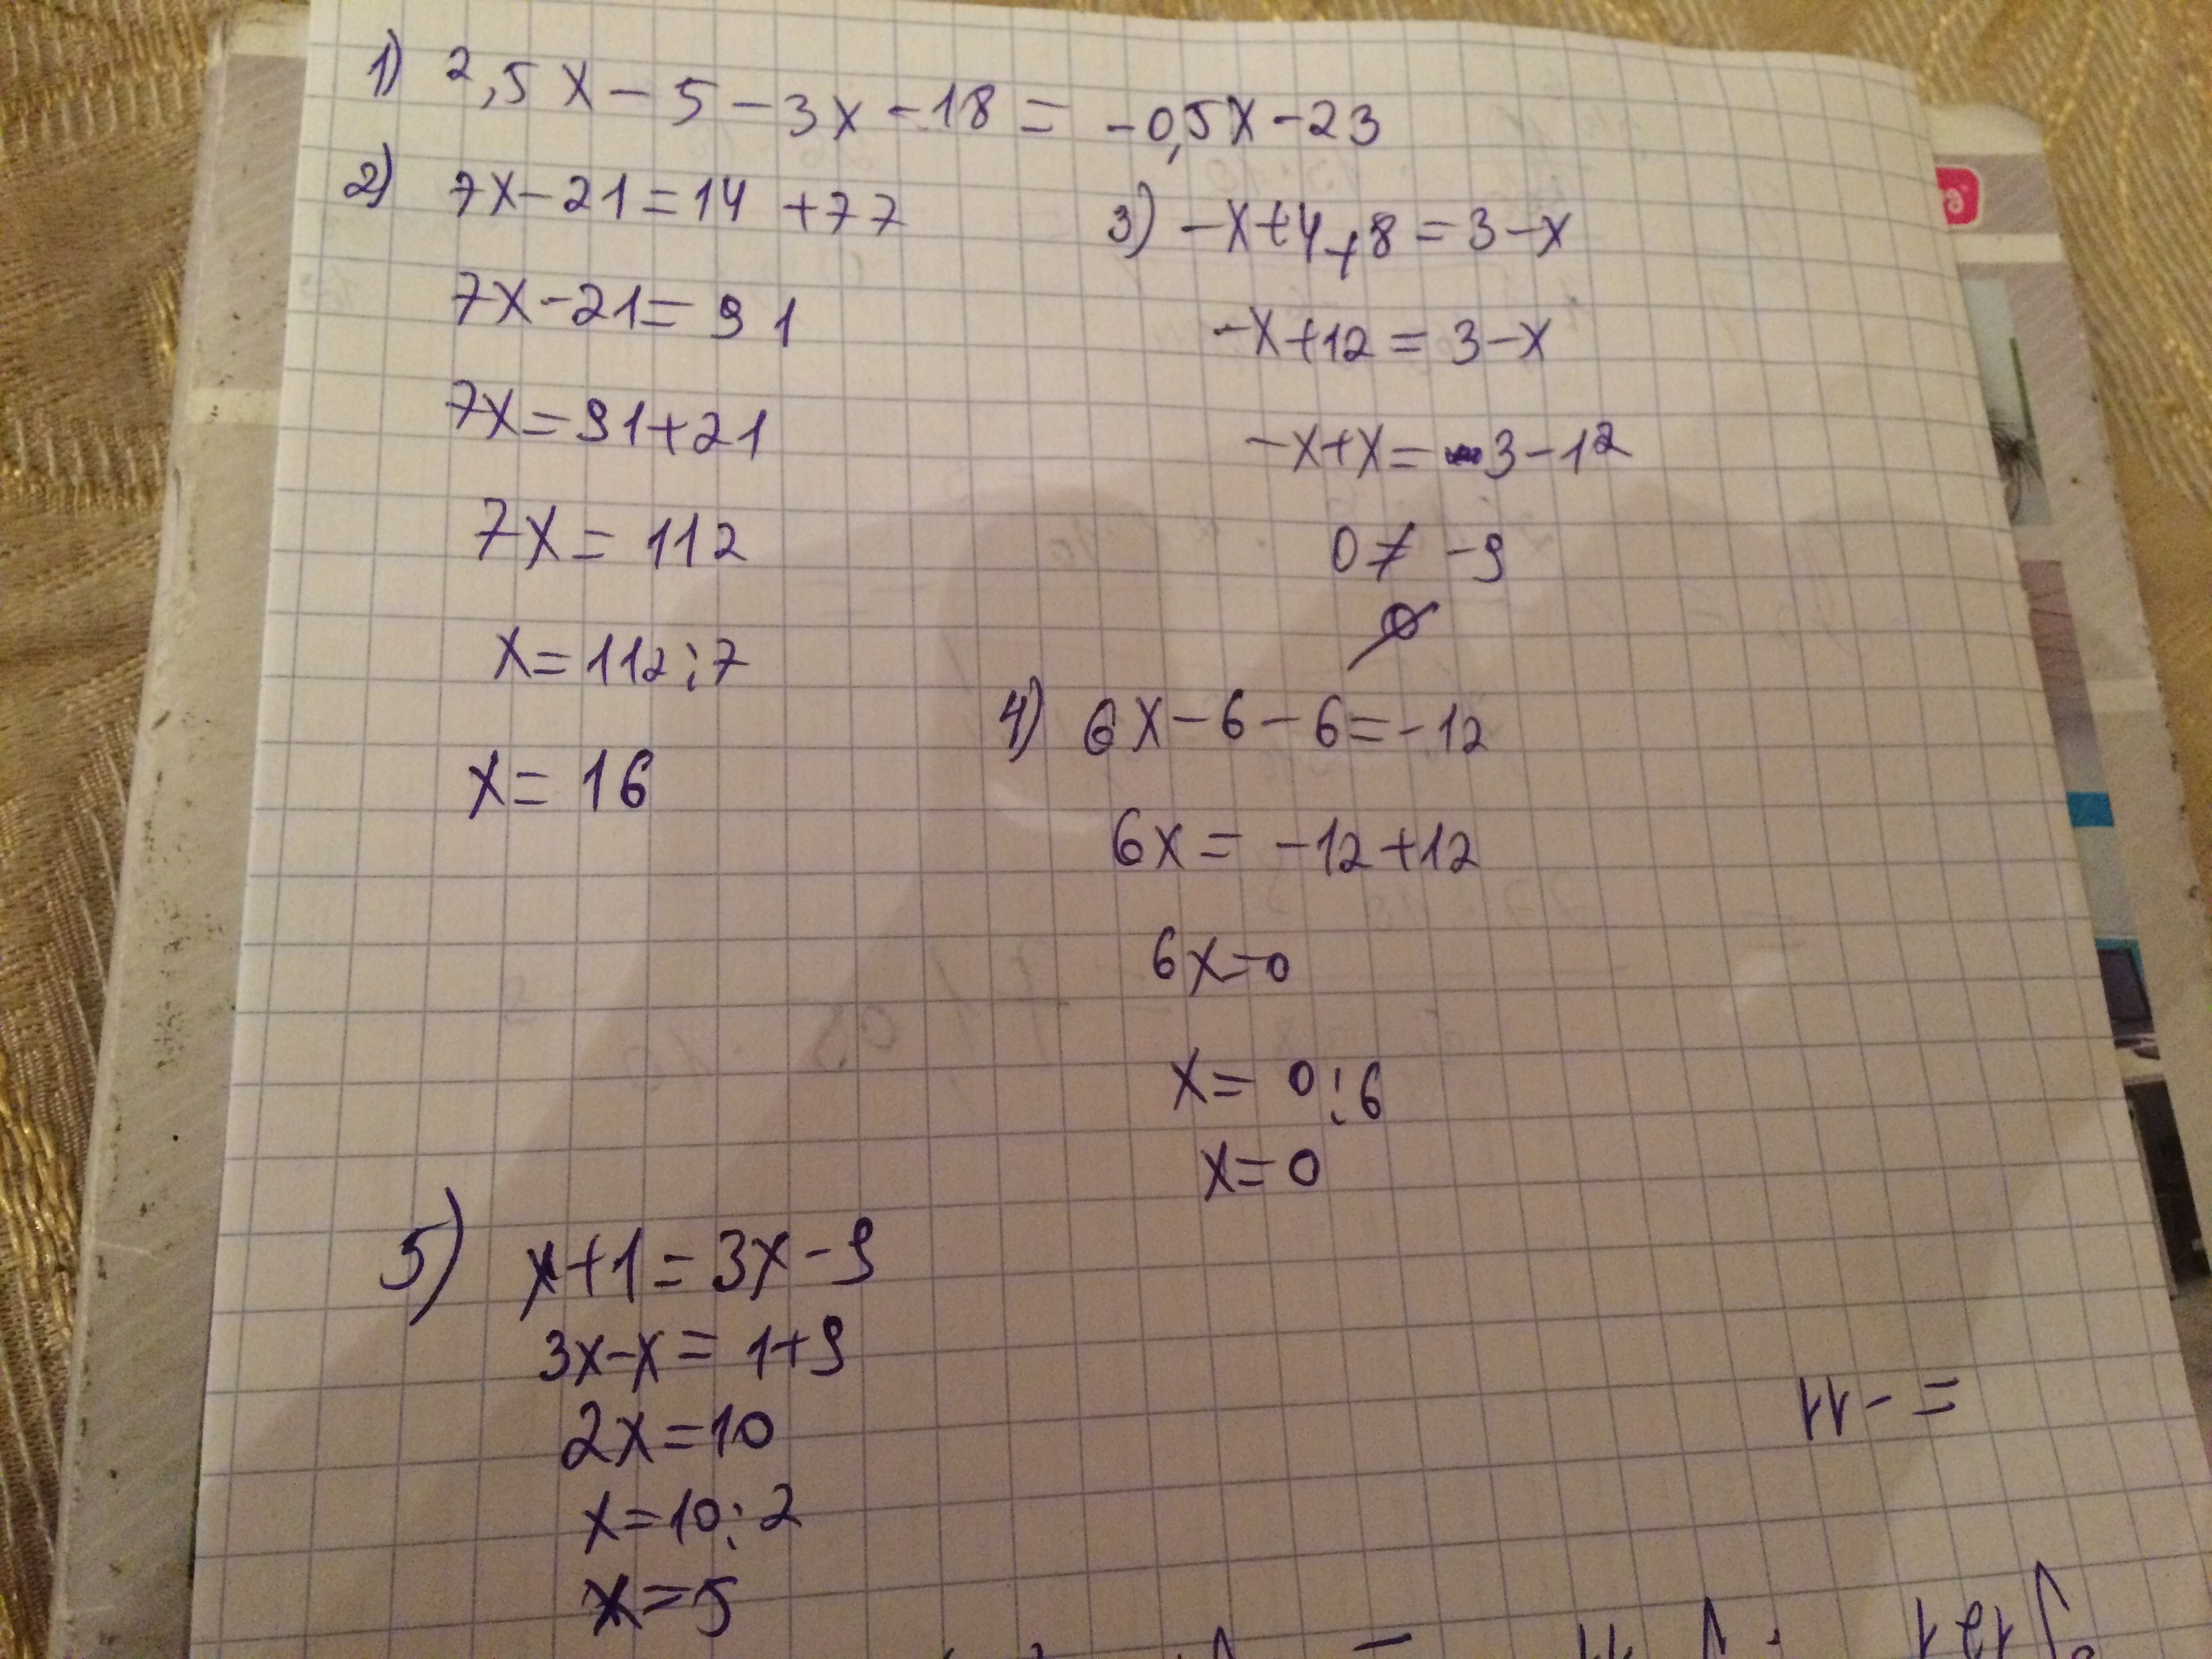 1) 2,5x - 5 - 3x - 18 = -0,5x - 23
2) 7x - 21 = 14 + 77
7x - 21 = 91
7x = 91 + 21
7x = 112
x = 112 : 7
x = 16
3) -x + 4 + 8 = 3 - x
-x + 12 = 3 - x
-x + x = 3 - 12
0 ≠ -9
∅
4) 6x - 6 - 6 = -12
6x = -12 + 12
6x = 0
x = 0 : 6
x = 0
5) x + 1 = 3x - 9
3x - x = 1 + 9
2x = 10
x = 10 : 2
x = 5
= -11